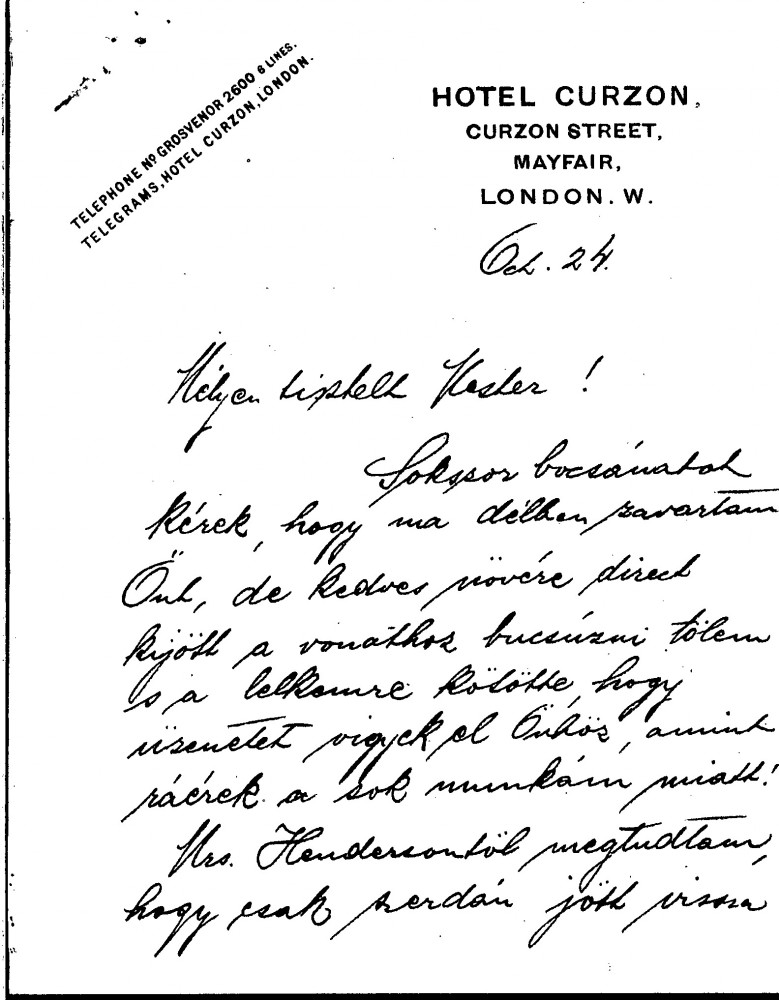 TELEPHONE Nº GROSVENOR 2600 6 LINES.
TELEGRAMS, HOTEL CURZON, LONDON.
HOTEL CURZON,
CURZON STREET,
MAYFAIR,
LONDON. W.
Oct. 24.
Mélyen tisztelt Mester !
Sokszor bocsánatot
kérek, hogy ma délben zavartam
Önt, de kedves növére direct
kijött a vonathoz bucsúzni tölem
s a lelkemre kötötte, hogy
üzenetet vigyek el Önhöz, amint
ráérek a sok munkám miatt!
Mrs. Hendersontól megtudtam,
hogy csak szerdán jött vissza